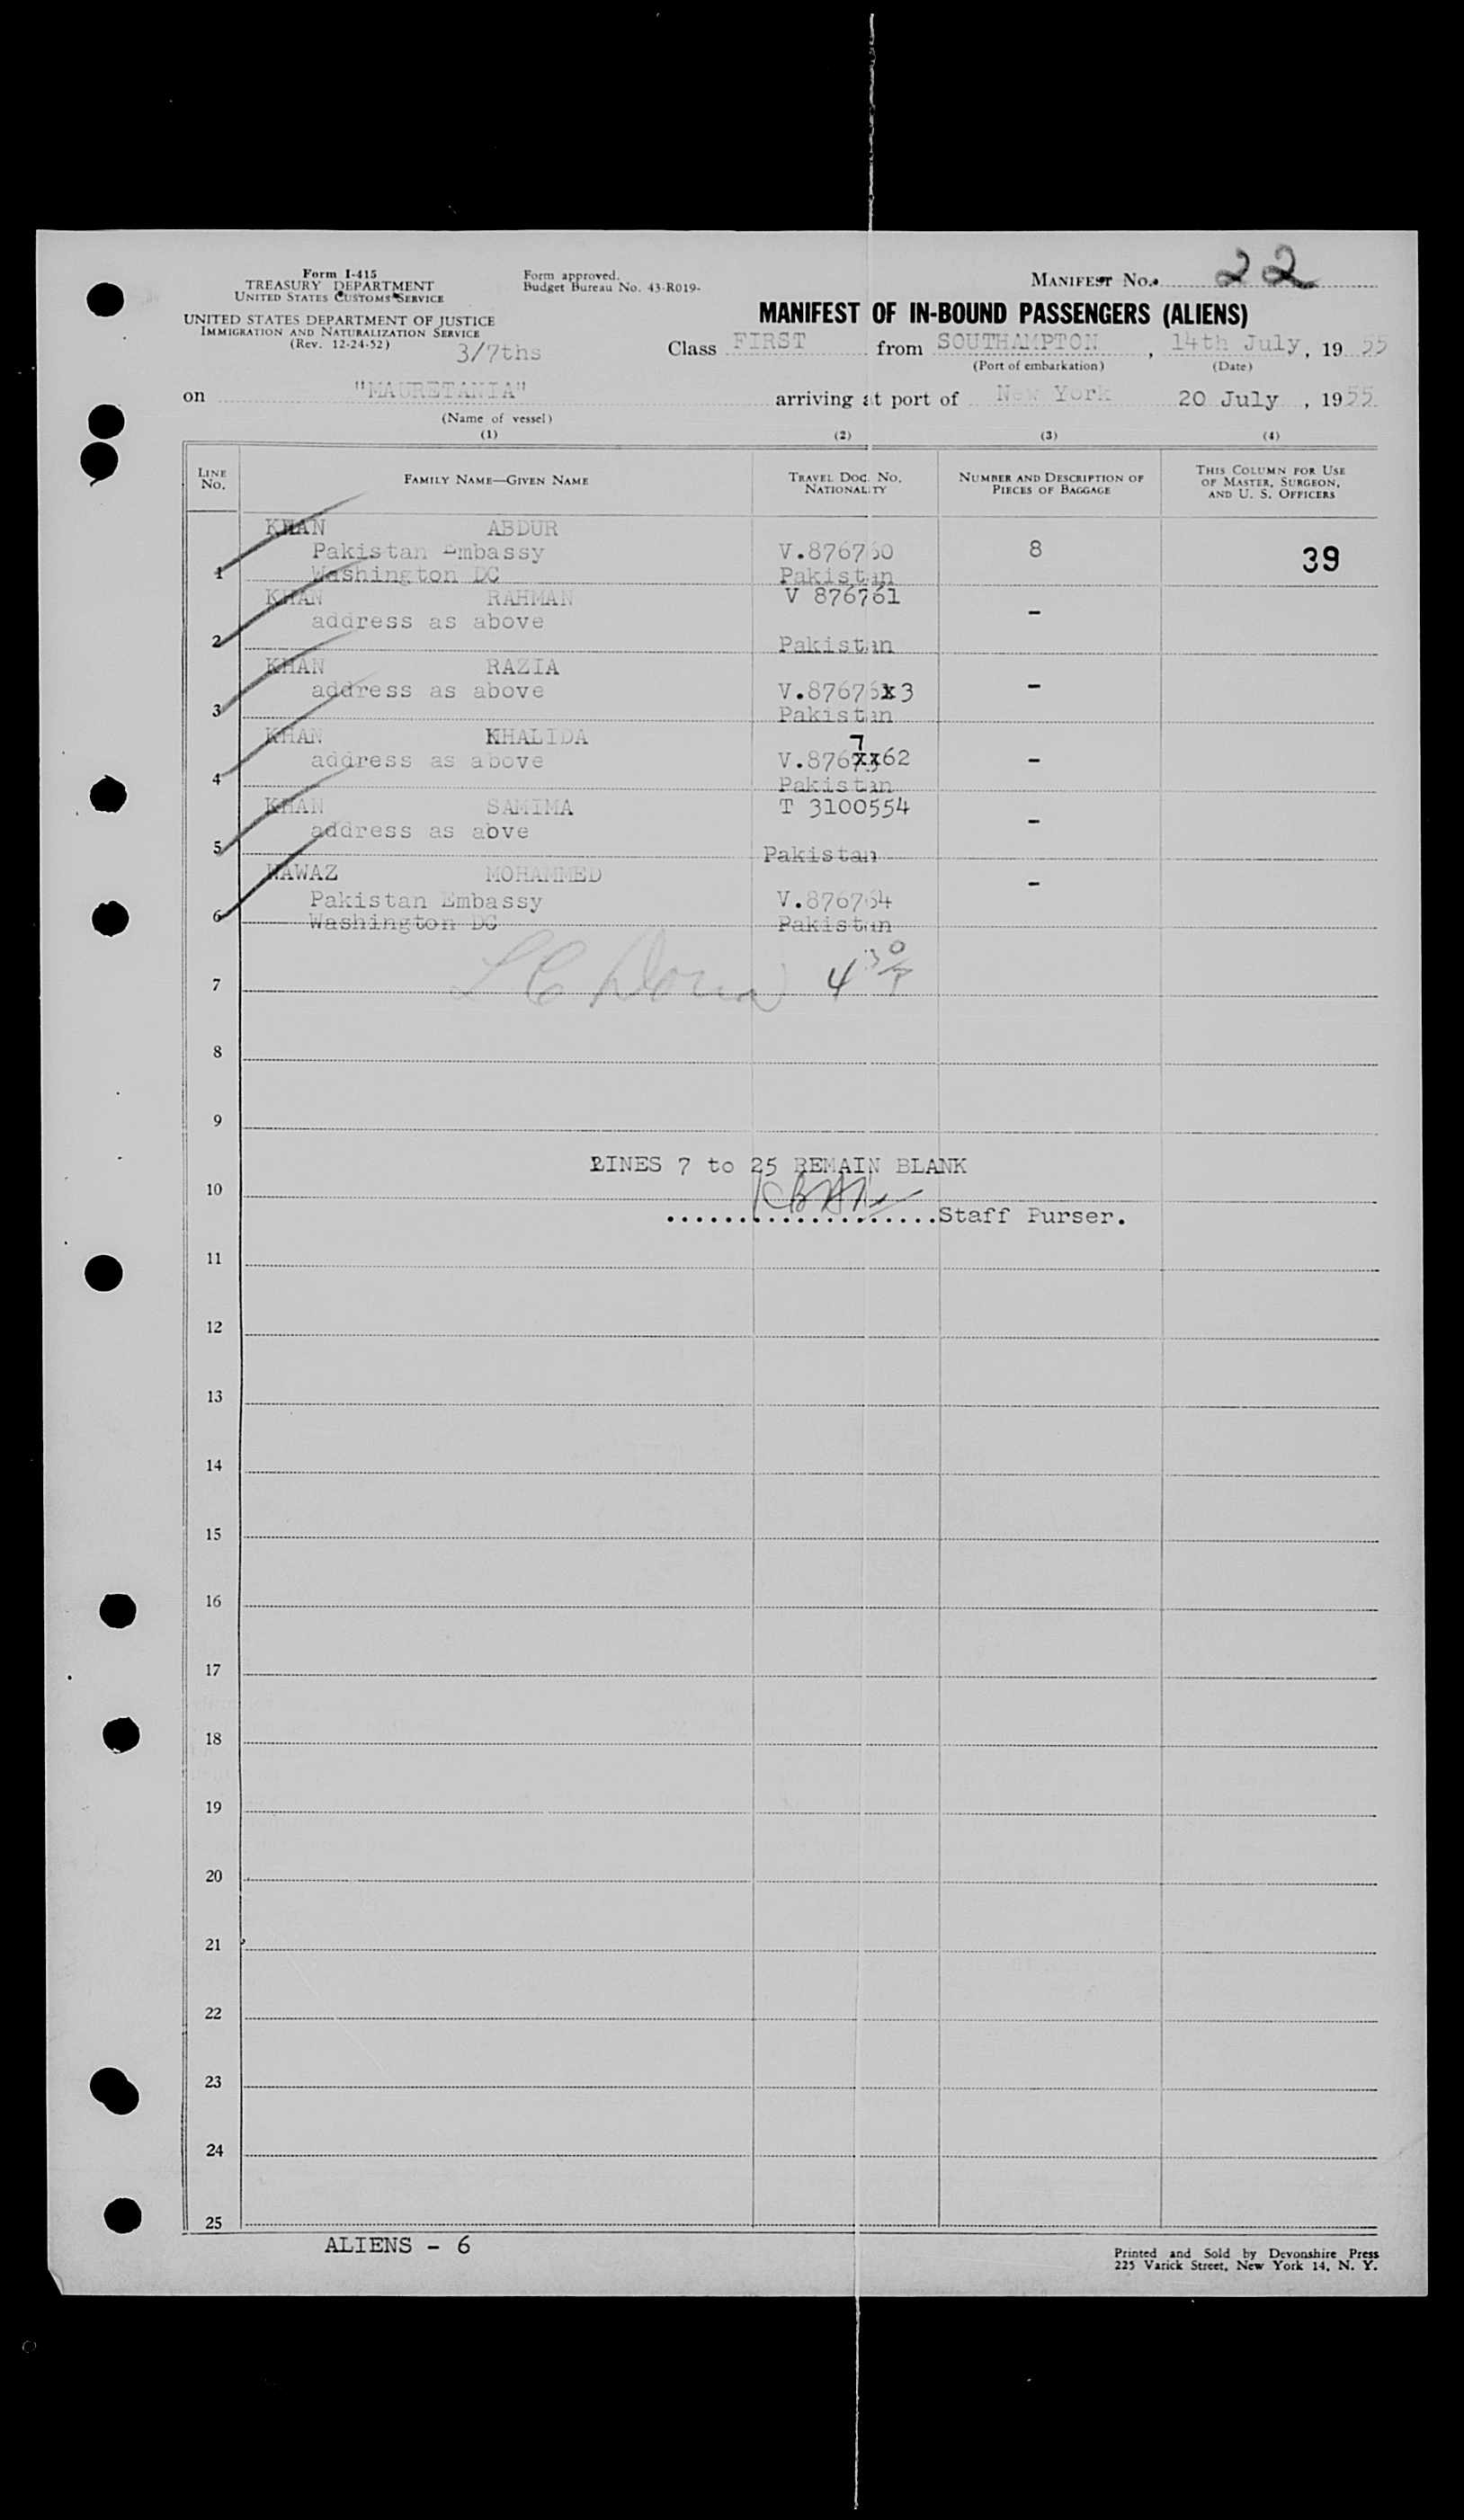 Form I-415
TREASURY DEPARTMENT
UNITED STATES CUSTOMS SERVICE
UNITED STATES DEPARTMENT OF JUSTICE
IMMIGRATION AND NATURALIZATION SERVICE
(Rev. 12-24-52)
3/7ths
Form approved.
Budget Bureau No. 43-R019-
MANIFEST No. 22
MANIFEST OF IN-BOUND PASSENGERS (ALIENS)
Class FIRST from SOUTHAMPTON, 14th July, 1955
(Port of embarkation) (Date)
on "MAURETANIA" arriving at port of New York 20 July, 1955
(Name of vessel)
(1) (2) (3) (4)
LINE No. FAMILY NAME—GIVEN NAME TRAVEL DOC. No. NATIONALITY NUMBER AND DESCRIPTION OF PIECES OF BAGGAGE THIS COLUMN FOR USE OF MASTER, SURGEON, AND U. S. OFFICERS
KHAN ABDUR
Pakistan Embassy V.876760 8 39
1 Washington DC Pakistan
KHAN RAHMAN V 876761
address as above -
2 Pakistan
KHAN RAZIA
address as above V.87676x3 -
3 Pakistan
KHAN KHALIDA 7
address as above V.876xx62 -
4 Pakistan
KHAN SAMIMA T 3100554
address as abve -
5 Pakistan
NAWAZ MOHAMMED -
Pakistan Embassy V.876764
6 Washington DC Pakistan
7 4 30
8
9
LINES 7 to 25 REMAIN BLANK
10
....................Staff Purser.
11
12
13
14
15
16
17
18
19
20
21
22
23
24
25
ALIENS - 6
Printed and Sold by Devonshire Press
225 Varick Street, New York 14, N. Y.